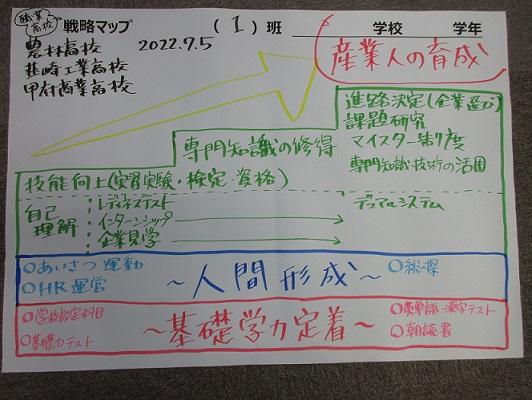 職業高校 戦略マップ (1)班 学校 学年
農林高校 2022.9.5
韮崎工業高校
甲府商業高校
産業人の育成
進路決定(企業選び)
課題研究
マイスター制度
専門知識・技術の活用
専門知識の修得
技能向上(実習実験・検定・資格)
自己理解
レディネステスト
インターンシップ
企業見学
デュアルシステム
○あいさつ運動
○HR運営
～人間形成～
○総探
○学校設定科目
○基礎力テスト
～基礎学力定着～
○英単語・漢字テスト
○朝読書